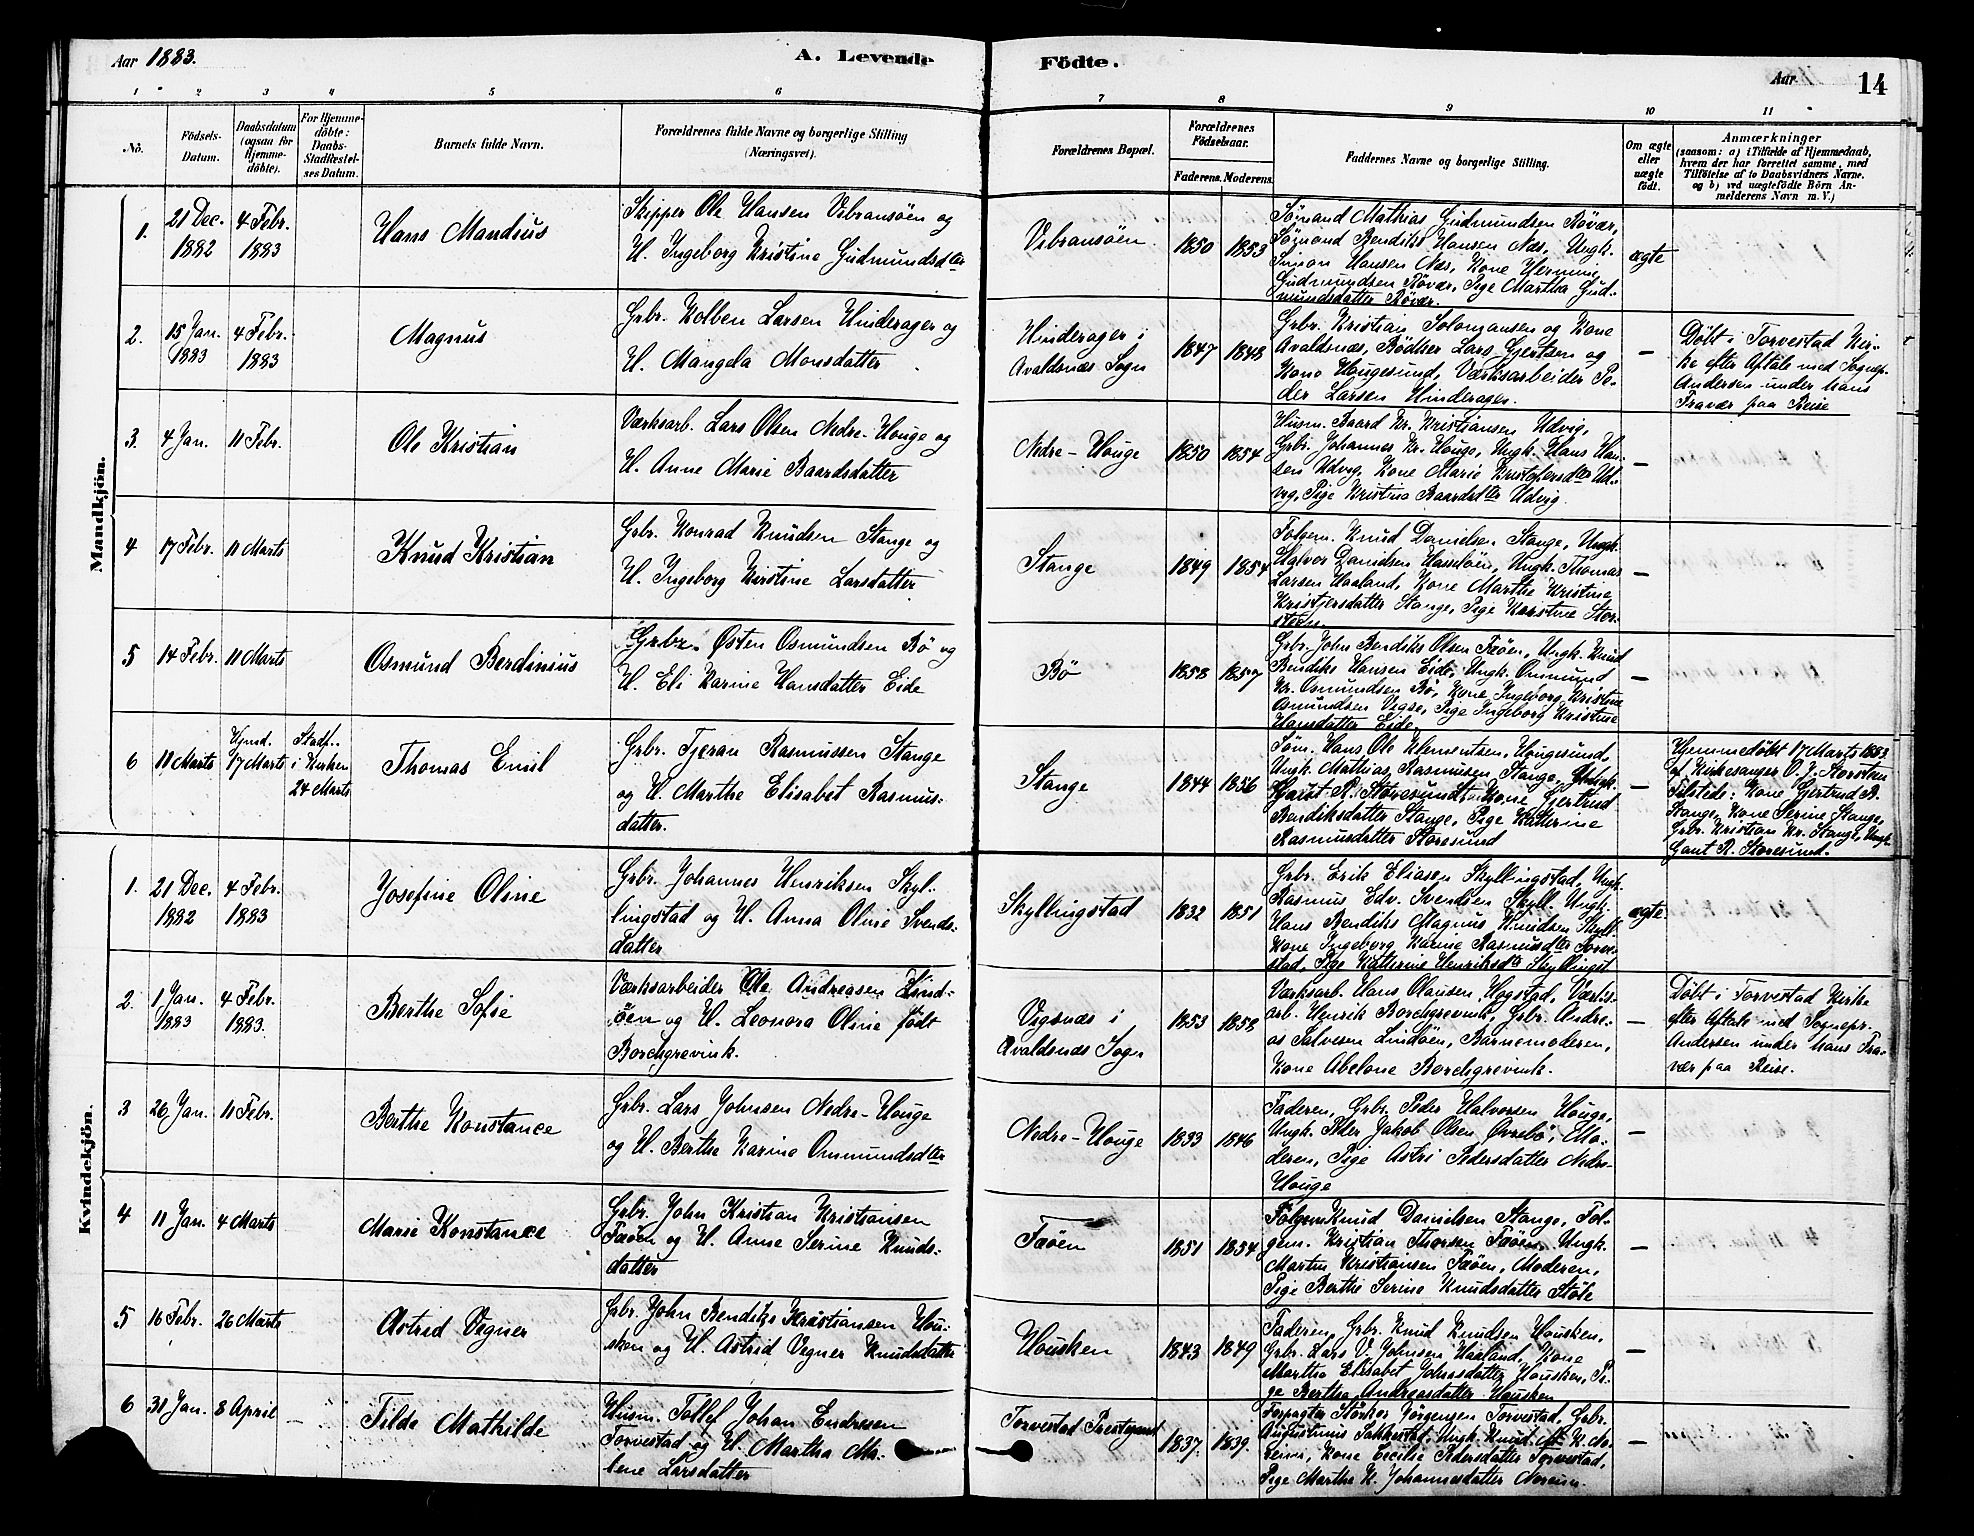 Aar 1883.
A. Levende Födte.
Aar
14
1 2 3 4 5 6 7 8 9 10 11
No.
Födsels-Datum.
Daabsdatum (ogsaa for Hjemme-döbte).
For Hjemme-döbte: Daabs-Stadfæstel-ses Datum.
Barnets fulde Navn.
Forældrenes fulde Navne og borgerlige Stilling (Næringsvei).
Forældrenes Bopæl.
Forældrenes Födselsaar.
Faderens. Moderens.
Faddernes Navne og borgerlige Stilling.
Om ægte eller uægte födt.
Anmærkninger
(saasom: a) i Tilfælde af Hjemmedaab,
hvem der har forrettet samme, med
Tilföielse af to Daabsvidners Navne.
og b) ved uægtefödte Börn An-
melderens Navn m. V.)
Mandkjön.
1. 21 Dec. 1882 4 Febr. 1883
Hans Mandius
Skipper Ole Hansen Vibransöen og
H. Ingeborg Kristine Gudmundsdter
Vibransöen 1850 1853
Sömand Mathias Gudmundsen Rövær,
Sömand Bendiks Hansen Næs, Ungk.
Simon Hansen Næs, Kone Hermine
Gudmundsen Rövær, Pige Martha Gud-
mundsdatter Rövær.
ægte
2. 15 Jan. 1883 4 Febr. 1883
Magnus
Grbr. Kolben Larsen Hinderager og
H. Mangela Monsdatter
Hinderager i
Avaldsnæs Sogn
1847 1848
Grbr. Kristian Solomansen og Kone
Avaldsnæs, Bödker Lars Gjertsen og
Kone Hougesund, Værksarbeider Pe-
der Larsen Hinderager.
—
Döbt i Torvestad Kir-
ke efter Aftale med Sognep.
Andersen under hans
Fravær paa Reise
3. 4 Jan. 11 Febr.
Ole Kristian
Værksarb. Lars Olsen Nedre-Houge og
H. Anne Marie Baardsdatter
Nedre-Houge 1850 1854
Husm. Baard Kr. Kristiansen Udvig,
Grbr. Johannes Kr. Houge, Ungk. Hans Han-
sen Udvig, Kone Marie Kristofersdter Ud-
vig, Pige Kristina Baardsdter Udvig.
—
4 17 Febr. 11 Marts
Knud Kristian
Grbr. Konrad Knudsen Stange og
H. Ingeborg Kirstine Larsdatter
Stange 1849 1854
Folgem. Knud Danielsen Stange, Ungk.
Halvor Danielsen Hasselöen, Ungk. Thomas
Larsen Haaland, Kone Marthe Kristine
Kristjersdatter Stange, Pige Karstine Stor-
steen.
—
5 14 Febr. 11 Marts
Osmund Berdinius
Grbr. Østen Osmundsen Bö og
H. Eli Karine Hansdatter Eide
Bö 1858 1857
Grbr. John Bendiks Olsen Fæöen, Ungk. Knud
Bendiks Hansen Eide, Ungk. Ommund
Kr. Osmundsen Bö, Kone Ingeborg Kristine
Osmundsen Vigse, Pige Ingeborg Kristine
Hansdatter Eide
—
6 11 Marts Hjmd. 17 Marts Stadf. i Kirken 24 Marts
Thomas Emil
Grbr. Tjeran Rasmussen Stange
og H. Marthe Elisabet Rasmus-
datter.
Stange 1844 1856
Söm. Hans Ole Klementsen, Hougesund,
Ungk. Mathias Rasmusen Stange, Ungk.
Gaut R. Storesund, Kone Gjertrud
Bendiksdatter Stange, Pige Katterine
Rasmusdatter Storesund
—
Hjemmedöbt 17 Marts 1883
af Kirkesanger O. J. Storsteen
Tilstede: Kone Gjertrud B.
Stange, Kone Serine Stange,
Grbr. Kristian Kr. Stange, Ungk.
Gaut R. Storesund.
Kvindekjön.
1. 21 Dec. 1882 4 Febr. 1883
Josefine Oline
Grbr. Johannes Henriksen Skyl-
lingstad og H. Anna Oline Svends-
datter
Skyllingstad 1832 1851
Grbr. Erik Eliasen Skyllingstad, Ungk.
Rasmus Edv. Svendsen Skyll. Ungk.
Hans Bendiks Magnus Knudsen Skyll.
Kone Ingeborg Karine Rasmusdter Torve-
stad, Pige Katterine Henriksdt. Skyllingst
ægte
2. 1 Jan. 1883 4 Febr. 1883.
Berthe Sofie
Værksarbeider Ole Andreasen Lind-
öen og H. Leonora Oline födt
Borchgrevink.
Vigsnæs i
Avaldsnæs Sogn
1853 1858
Værksarb. Hans Olausen Hogstad, Værks-
arb. Henrik Borchgrevink, Grbr. Andre-
as Salvesen Lindöen, Barnemoderen,
Kone Abelone Borchgrevink.
—
Döbt i Torvestad Kirke
efter Aftale med Sognepr.
Andersen under hans Fra-
vær paa Reise.
3 26 Jan. 11 Febr.
Berthe Konstance
Grbr. Lars Johnsen Nedre-Houge
og H. Berthe Karine Ommundsdter
Nedre-Houge 1833 1846
Faderen, Grbr. Peder Halvorsen Houge,
Ungk. Peder Jakob Olsen Övrebö, Mo-
deren, Pige Astri Pedersdatter Nedre-
Houge
—
4 11 Jan. 4 Marts
Marie Konstance
Grbr. John Kristian Kristiansen
Fæöen og H. Anne Serine Knuds-
datter
Fæöen 1851 1854
Folgem Knud Danielsen Stange, Fol-
gem. Kristian Thorsen Fæöen, Ungk.
Martin Kristiansen Fæöen, Moderen,
Pige Berthe Serine Knudsdatter Stöle
—
5 16 Febr. 26 Marts
Astrid Vegner
Grbr. John Bendiks Kristiansen Hou-
sken og H. Astrid Vegner Knudsdatter
Housken 1843 1849
Faderen, Grbr. Knud Knudsen Housken,
Grbr. Lars V. Johnsen Haaland, Kone
Martha Elisabet Johnsdatter Housken, Pi-
ge Bertha Andreasdatter Housken
—
6 31 Jan. 8 April —
Tilde Mathilde
Husm. Tollef Johan Endresen
Torvestad og H. Martha Ma-
lene Larsdatter
Torvestad Prestegaard 1837. 1839.
Forpagter Störker Jörgensen Torvestad, Grbr.
Augustinus Sakkestad, Ungk. Knud M. K.
Kone Cecilie Pedersdatter Torvestad,
Pige Marthe K. Johannesdatter
—